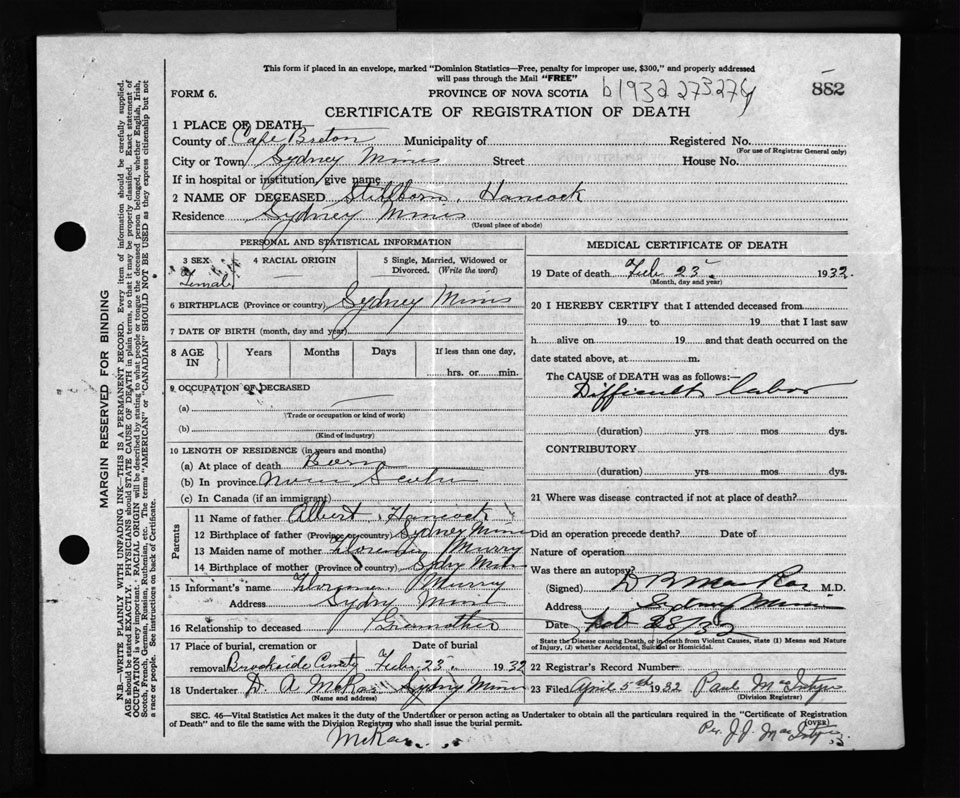 This form if placed in an envelope, marked "Dominion Statistics—Free, penalty for improper use, $300," and properly addressed
will pass through the Mail "FREE"
FORM 6. PROVINCE OF NOVA SCOTIA b1932 273276 882
CERTIFICATE OF REGISTRATION OF DEATH
1 PLACE OF DEATH
County of Cape Breton Municipality of Registered No.
(For use of Registrar General only)
City or Town Sydney Mines Street House No.
If in hospital or institution, give name
2 NAME OF DECEASED Stillborn. Hancock
Residence Sydney Mines
(Usual place of abode)
PERSONAL AND STATISTICAL INFORMATION
3 SEX 4 RACIAL ORIGIN 5 Single, Married, Widowed or
Divorced. (Write the word)
Female
6 BIRTHPLACE (Province or country) Sydney Mines
7 DATE OF BIRTH (month, day and year)
8 AGE IN Years Months Days If less than one day,
hrs. or min.
9 OCCUPATION OF DECEASED
(a)
(Trade or occupation or kind of work)
(b)
(Kind of industry)
10 LENGTH OF RESIDENCE (in years and months)
(a) At place of death Born
(b) In province Nova Scotia
(c) In Canada (if an immigrant)
Parents
11 Name of father Albert Hancock
12 Birthplace of father (Province or country) Sydney Mines
13 Maiden name of mother Florence Murry
14 Birthplace of mother (Province or country) Sydny Mines
15 Informant's name Florence Murry
Address Sydny Mines
16 Relationship to deceased Gramother
17 Place of burial, cremation or Date of burial
removal Brookside Feb. 23. 1932
18 Undertaker D. A. McRae Sydny Mines
(Name and address)
MEDICAL CERTIFICATE OF DEATH
19 Date of death Feb 23. 1932.
(Month, day and year)
20 I HEREBY CERTIFY that I attended deceased from
19 to 19 that I last saw
h alive on 19 and that death occurred on the
date stated above, at m.
The CAUSE OF DEATH was as follows:—
Difficult labor
(duration) yrs. mos. dys.
CONTRIBUTORY
(duration) yrs. mos. dys.
21 Where was disease contracted if not at place of death?
Did an operation precede death? Date of
Nature of operation
Was there an autopsy?
(Signed) D B MacRae M.D.
Address Sydney Mines
Date Feb 28/32
State the Disease causing Death, or in death from Violent Causes, state (1) Means and Nature
of Injury, (2) whether Accidental, Suicidal or Homicidal.
22 Registrar's Record Number
23 Filed April 5th 1932 Paul MacIntyre
(Division Registrar)
SEC. 46—Vital Statistics Act makes it the duty of the Undertaker or person acting as Undertaker to obtain all the particulars required in the "Certificate of Registration
of Death" and to file the same with the Division Registrar who shall issue the burial permit. (OVER)
McRae. Per. J. J. MacIntyre
MARGIN RESERVED FOR BINDING
N.B—WRITE PLAINLY WITH UNFADING INK—THIS IS A PERMANENT RECORD. Every item of information should be carefully supplied.
AGE should be stated EXACTLY. PHYSICIANS should STATE CAUSE OF DEATH in plain terms, so that it may be properly classified. Exact statement of
OCCUPATION is very important. RACIAL ORIGIN will be described by stating to what people or tongue the deceased person belonged, whether English, Irish,
Scotch, French, German, Russian, Ruthenian, etc. The terms "AMERICAN" or "CANADIAN" SHOULD NOT BE USED as they express citizenship but not
a race or people. See instructions on back of Certificate.